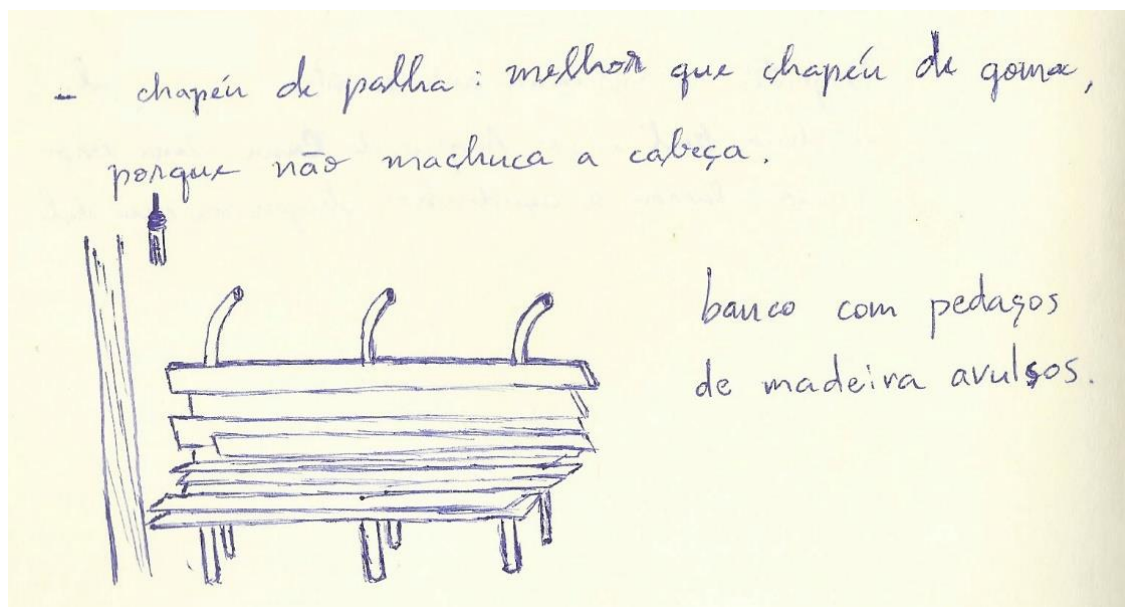 - chapéu de palha : melhor que chapéu de goma,
porque não machuca a cabeça.
banco com pedaços
de madeira avulsos.